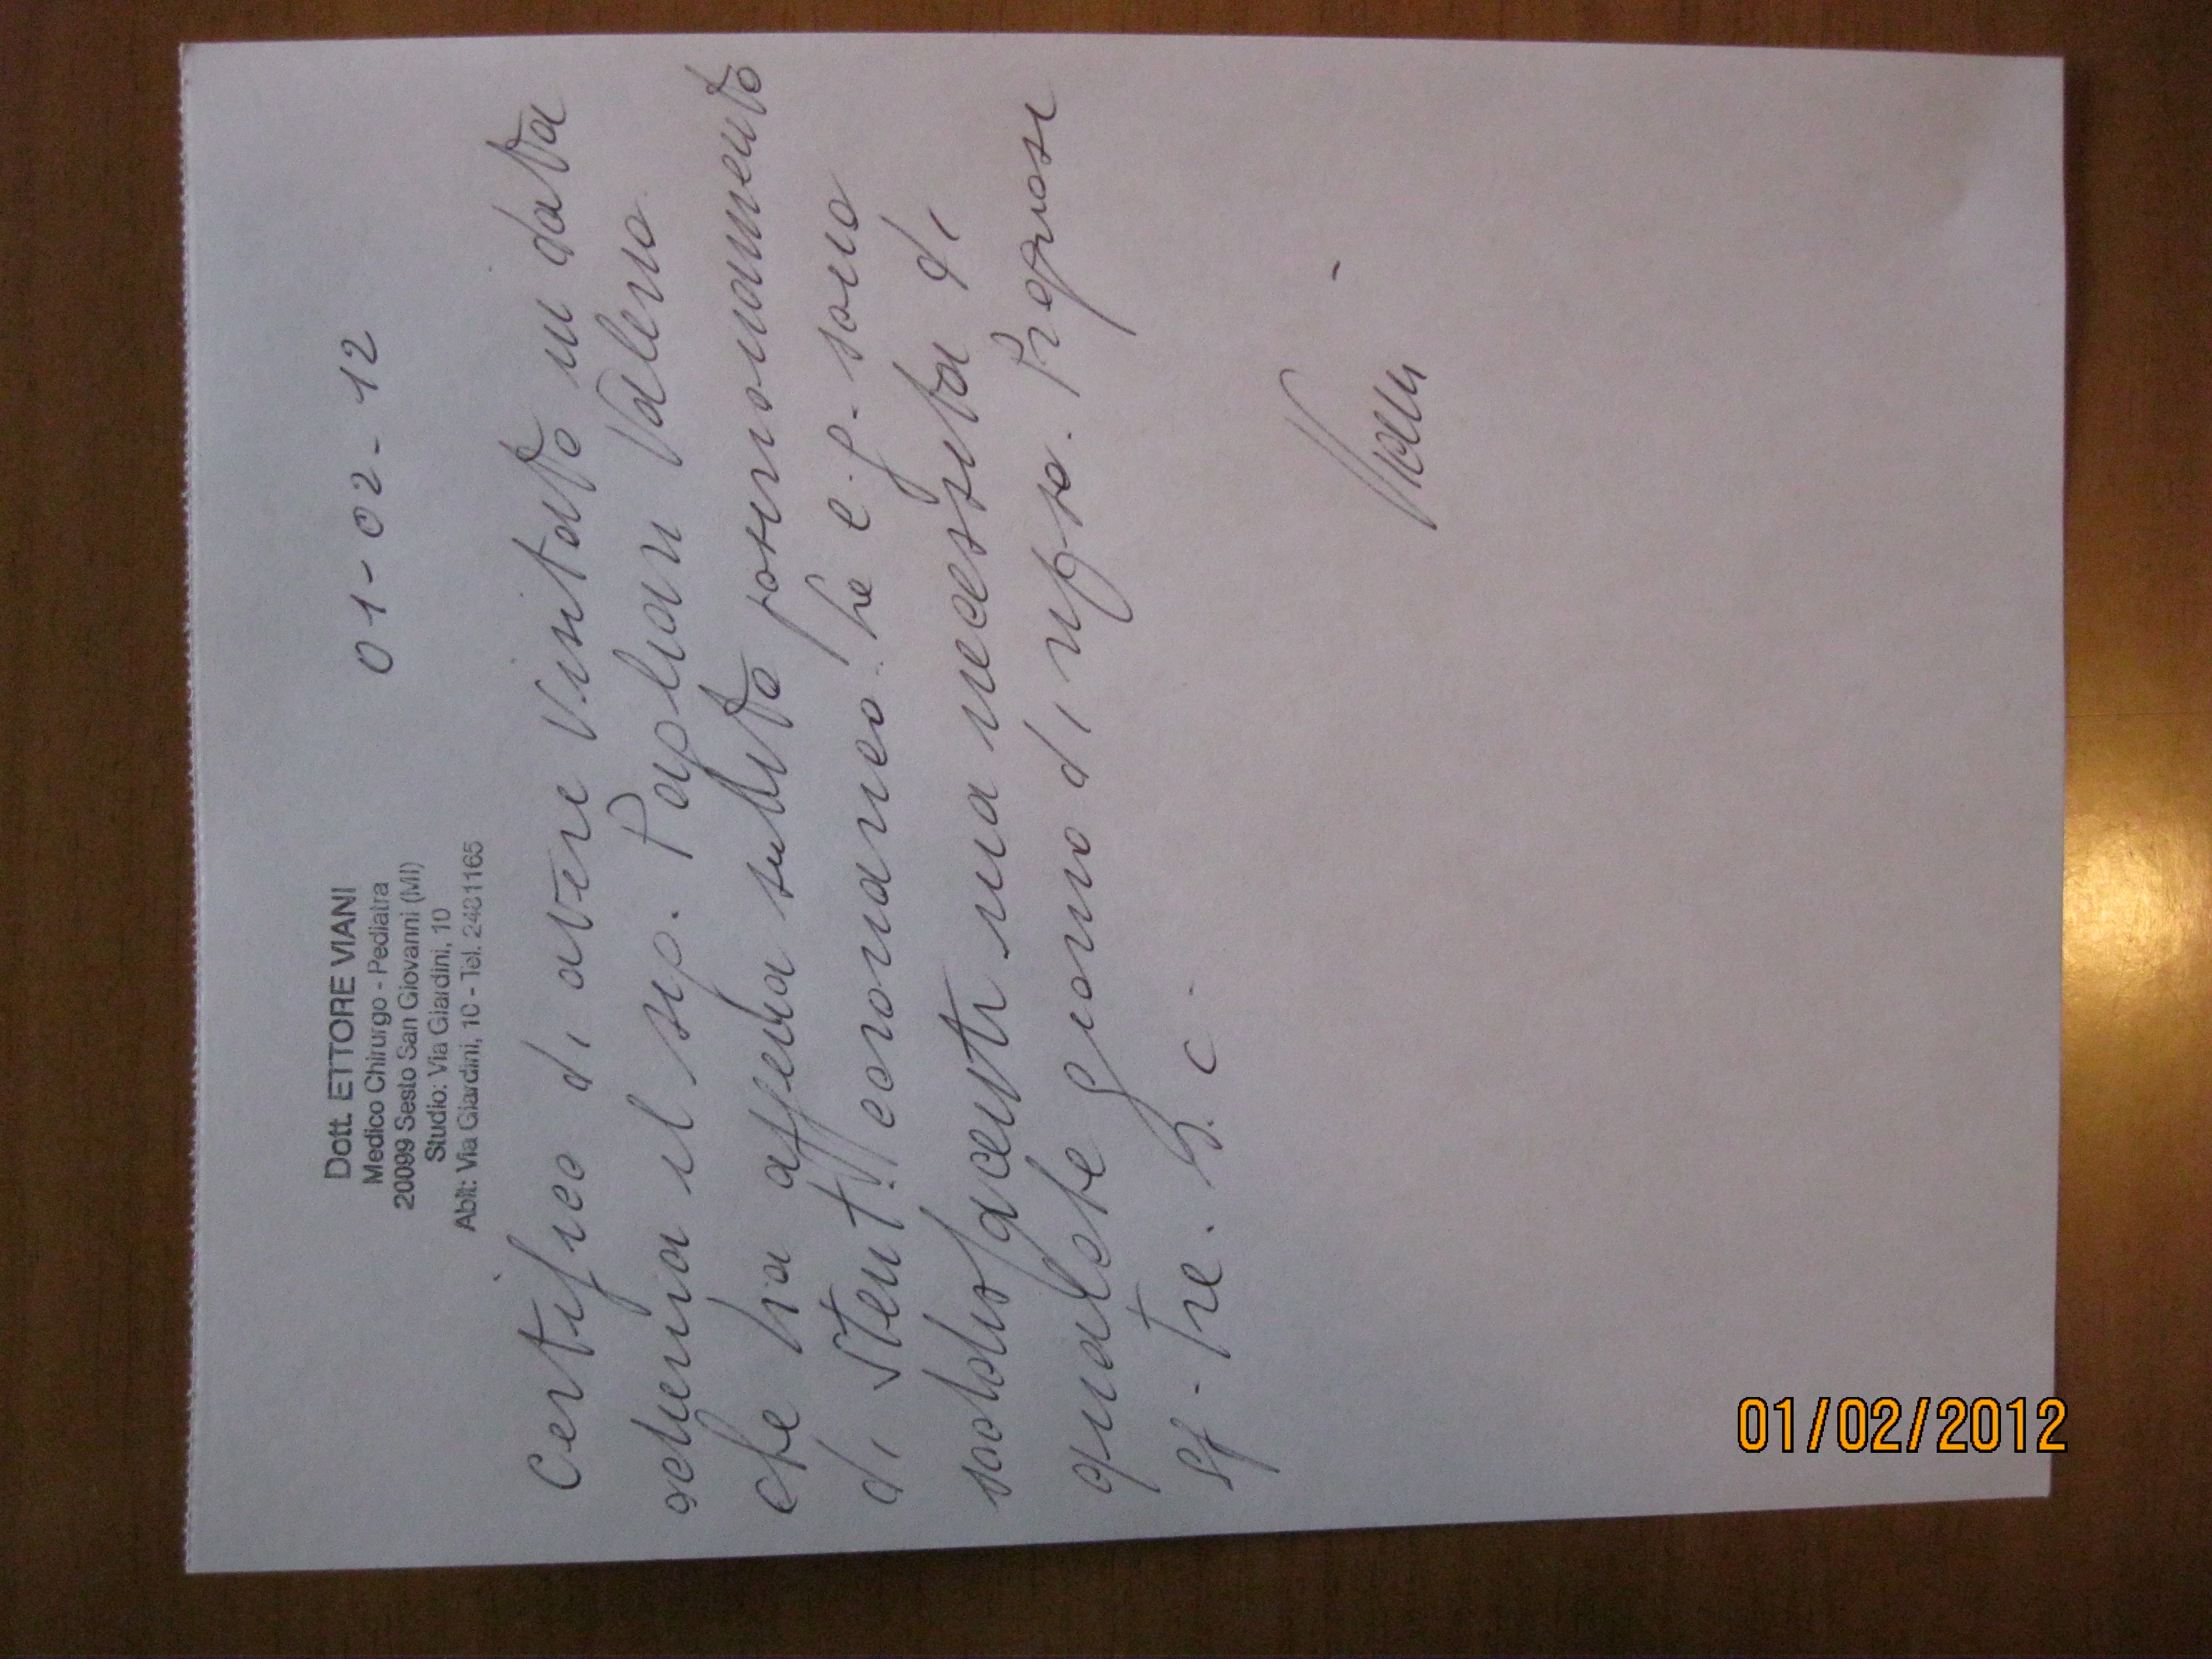 Dott. ETTORE VIANI
Medico Chirurgo - Pediatra
20099 Sesto San Giovanni (MI)
Studio: Via Giardini, 10
Abit: Via Giardini, 10 - Tel. 2481165
01-02-12
Certifico di avere visitato in data
odierna il sig. Pagliari Valerio
che ha appena subito posizionamento
di stent coronarico. Le c.p. sono
soddisfacenti ma necessita di
qualche giorno di riposo. Prognosi
gg. tre. S. c.
Viani
01/02/2012